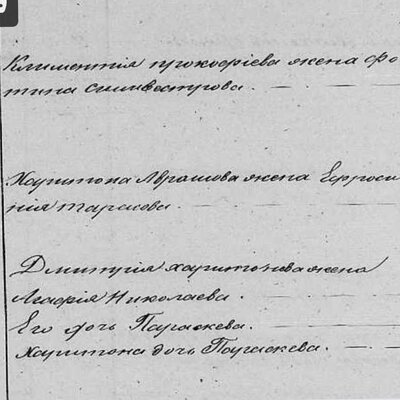 Климентія прокофіева жена фо
тина силивестрова.
Харитона Авраамова жена Ефроси
нія тарасова
Дмитрія харитонова жена
Агафія Николаева.
Его дочь Параскева.
Харитона дочь Параскева.